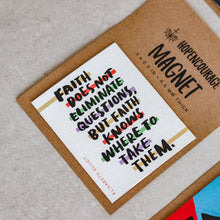 FAITH
DOES NOT
ELIMINATE
QUESTIONS.
BUT FAITH
KNOWS
WHERE TO
TAKE
THEM.
ELISABETH ELLIOT
HOPENCOURAGE
MAGNET